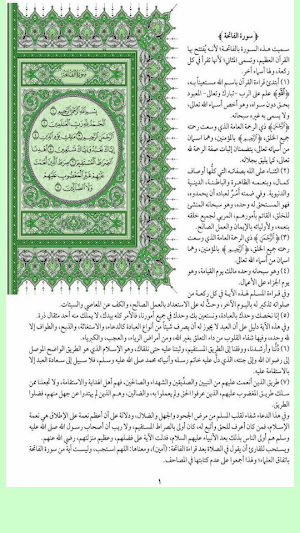 ﴿ سورة الفاتحة ﴾
سميت هذه السورة بالفاتحة؛ لأنه يُفتتح بها
القرآن العظيم، وتسمى المثاني؛ لأنها تقرأ في كل
ركعة، ولها أسماء أخر.
(١) أبتدئ قراءة القرآن باسم الله مستعينًا به،
﴿اللهِ﴾ علم على الرب -تبارك وتعالى- المعبود
بحق دون سواه، وهو أخص أسماء الله تعالى،
ولا يسمى به غيره سبحانه.
﴿الرَّحْمَنِ﴾ ذي الرحمة العامة الذي وسعت رحمته
جميع الخلق، ﴿الرَّحِيمِ﴾ بالمؤمنين، وهما اسمان
من أسمائه تعالى، يتضمنان إثبات صفة الرحمة لله
تعالى، كما يليق بجلاله.
(٢) الثناء على الله بصفاته التي كلُّها أوصاف
كمال، وبنعمه الظاهرة والباطنة، الدينية
والدنيوية، وفي ضمنه أَمْرٌ لعباده أن يحمدوه،
فهو المستحق له وحده، وهو سبحانه المنشئ
للخلق، القائم بأمورهم، المربي لجميع خلقه
بنعمه، ولأوليائه بالإيمان والعمل الصالح.
(٣) ﴿الرَّحْمَنِ﴾ ذي الرحمة العامة الذي وسعت
رحمته جميع الخلق، ﴿الرَّحِيمِ﴾ بالمؤمنين، وهما
اسمان من أسماء الله تعالى.
(٤) وهو سبحانه وحده مالك يوم القيامة، وهو
يوم الجزاء على الأعمال.
وفي قراءة المسلم لهذه الآية في كل ركعة من
صلواته تذكير له باليوم الآخر، وحثٌّ له على الاستعداد بالعمل الصالح، والكف عن المعاصي والسيئات.
(٥) إنا نخصك وحدك بالعبادة، ونستعين بك وحدك في جميع أمورنا، فالأمر كله بيدك، لا يملك منه أحد مثقال ذرة.
وفي هذه الآية دليل على أن العبد لا يجوز له أن يصرف شيئًا من أنواع العبادة كالدعاء والاستغاثة والذبح والطواف إلا
لله وحده، وفيها شفاء القلوب من داء التعلق بغير الله، ومن أمراض الرياء، والعجب، والكبرياء.
(٦) دُلَّنا وأرشدنا، ووفقنا إلى الطريق المستقيم، وثبتنا عليه حتى نلقاك، وهو الإسلام الذي هو الطريق الواضح الموصل
إلى رضوان الله وإلى جنته، الذي دلّ عليه خاتم رسله وأنبيائه محمد صلى الله عليه وسلم، فلا سبيل إلى سعادة العبد إلا
بالاستقامة عليه.
(٧) طريق الذين أنعمت عليهم من النبيين والصدِّيقين والشهداء والصالحين، فهم أهل الهداية والاستقامة، ولا تجعلنا ممن
سلك طريق المغضوب عليهم، الذين عرفوا الحق ولم يعملوا به، والضالين، وهم الذين لم يهتدوا عن جهل منهم، فضلوا
الطريق.
وفي هذا الدعاء شفاء لقلب المسلم من مرض الجحود والجهل والضلال، ودلالة على أن أعظم نعمة على الإطلاق هي نعمة
الإسلام، فمن كان أعرف للحق وأتبع له، كان أولى بالصراط المستقيم، ولا ريب أن أصحاب رسول الله صلى الله عليه
وسلم هم أولى الناس بذلك بعد الأنبياء عليهم السلام، فدلت الآية على فضلهم، وعظيم منزلتهم، رضي الله عنهم.
ويستحب للقارئ أن يقول في الصلاة بعد قراءة الفاتحة: (آمين)، ومعناها: اللهم استجب، وليست آية من سورة الفاتحة
باتفاق العلماء؛ ولهذا أجمعوا على عدم كتابتها في المصاحف.
١